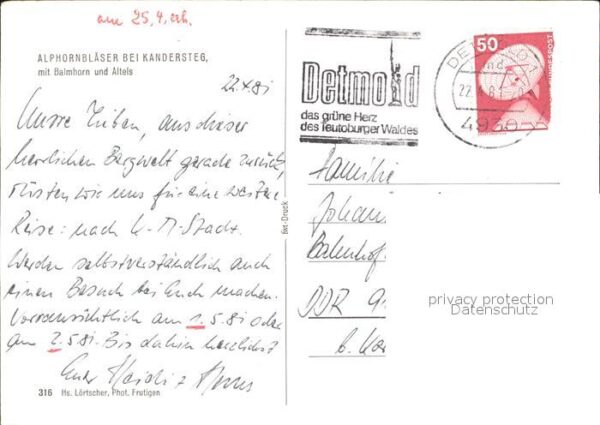 am 25.4. erh.
ALPHORNBLÄSER BEI KANDERSTEG,
mit Balmhorn und Altels
22.4.81
Unsre Lieben, aus dieser
herrlichen Bergwelt gerade zurück,
rüsten wir uns für eine weitere
Reise: nach K.-M.-Stadt.
Werden selbstverständlich auch
einen Besuch bei Euch machen.
Voraussichtlich am 1.5.81 oder
am 2.5.81. Bis dahin herzlichst
Eure Heidi + Hans
316 Hs. Lörtscher, Phot. Frutigen
Detmold
das grüne Herz
des Teutoburger Waldes
DETMOLD
22.4.81
4930
50
BUNDESPOST
Familie
Johann
Bahnhof
DDR 9
b. Kar
privacy protection
Datenschutz